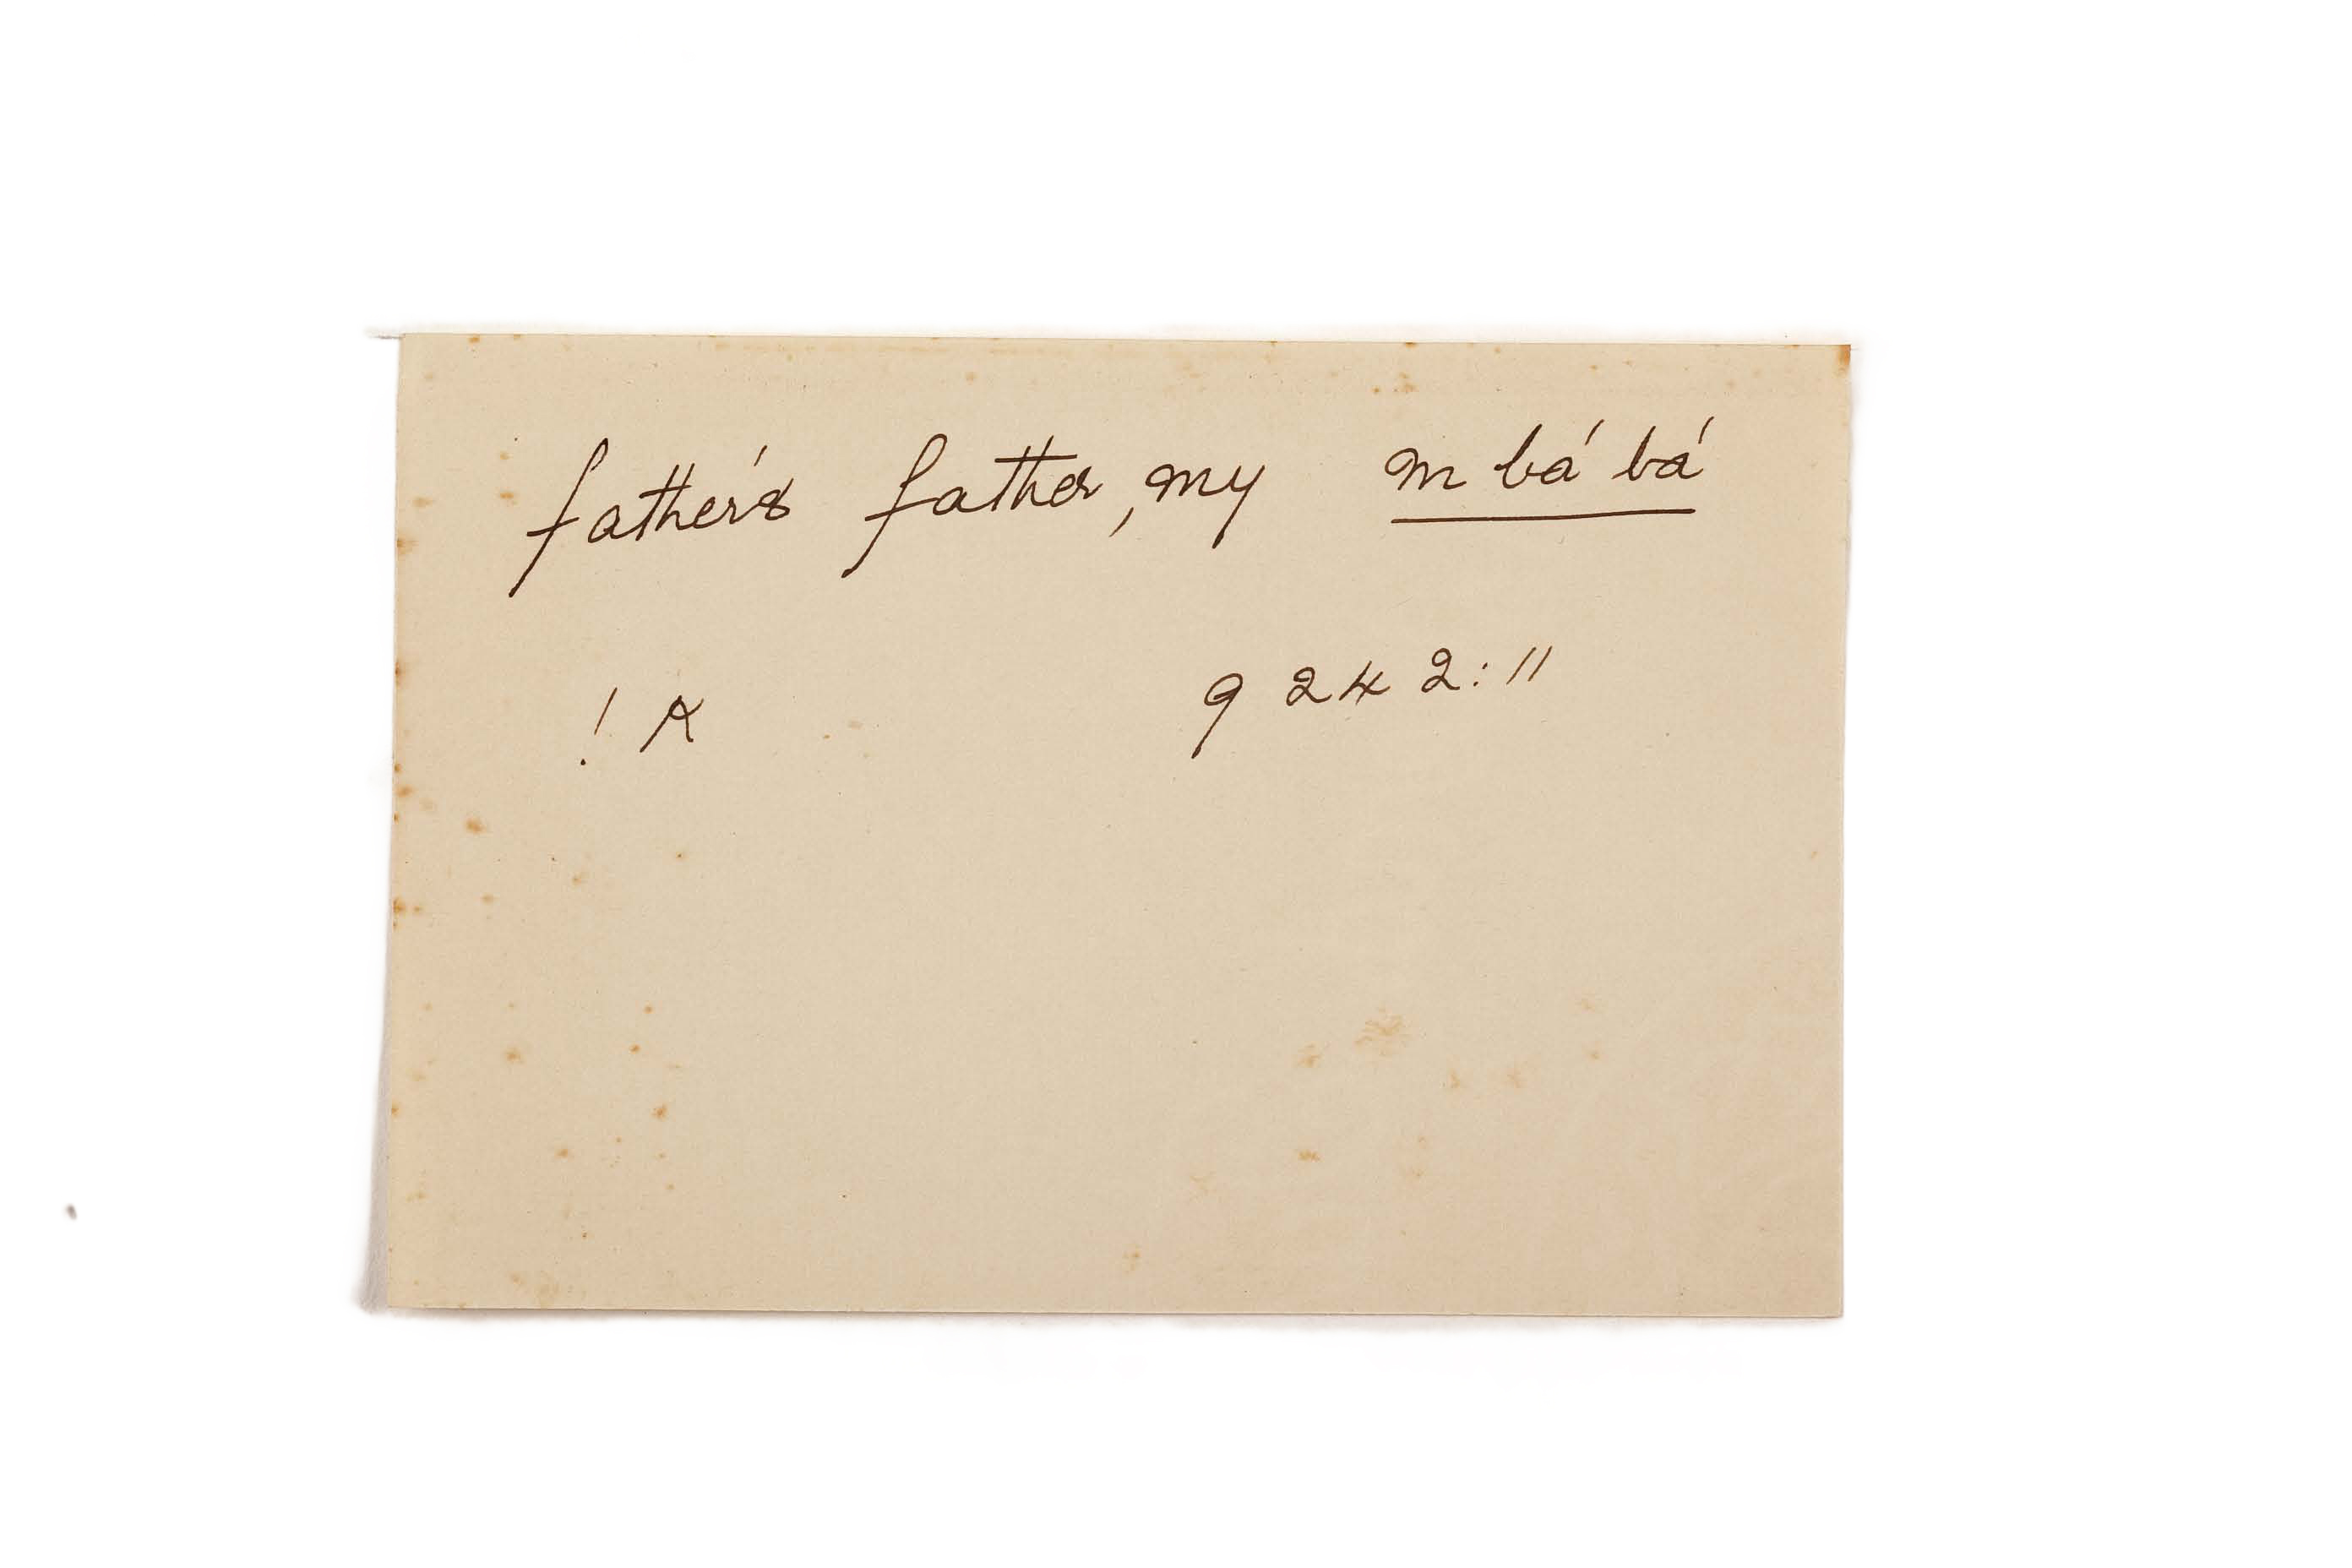 father's father, my m bá bá
! K 9 242 2:11